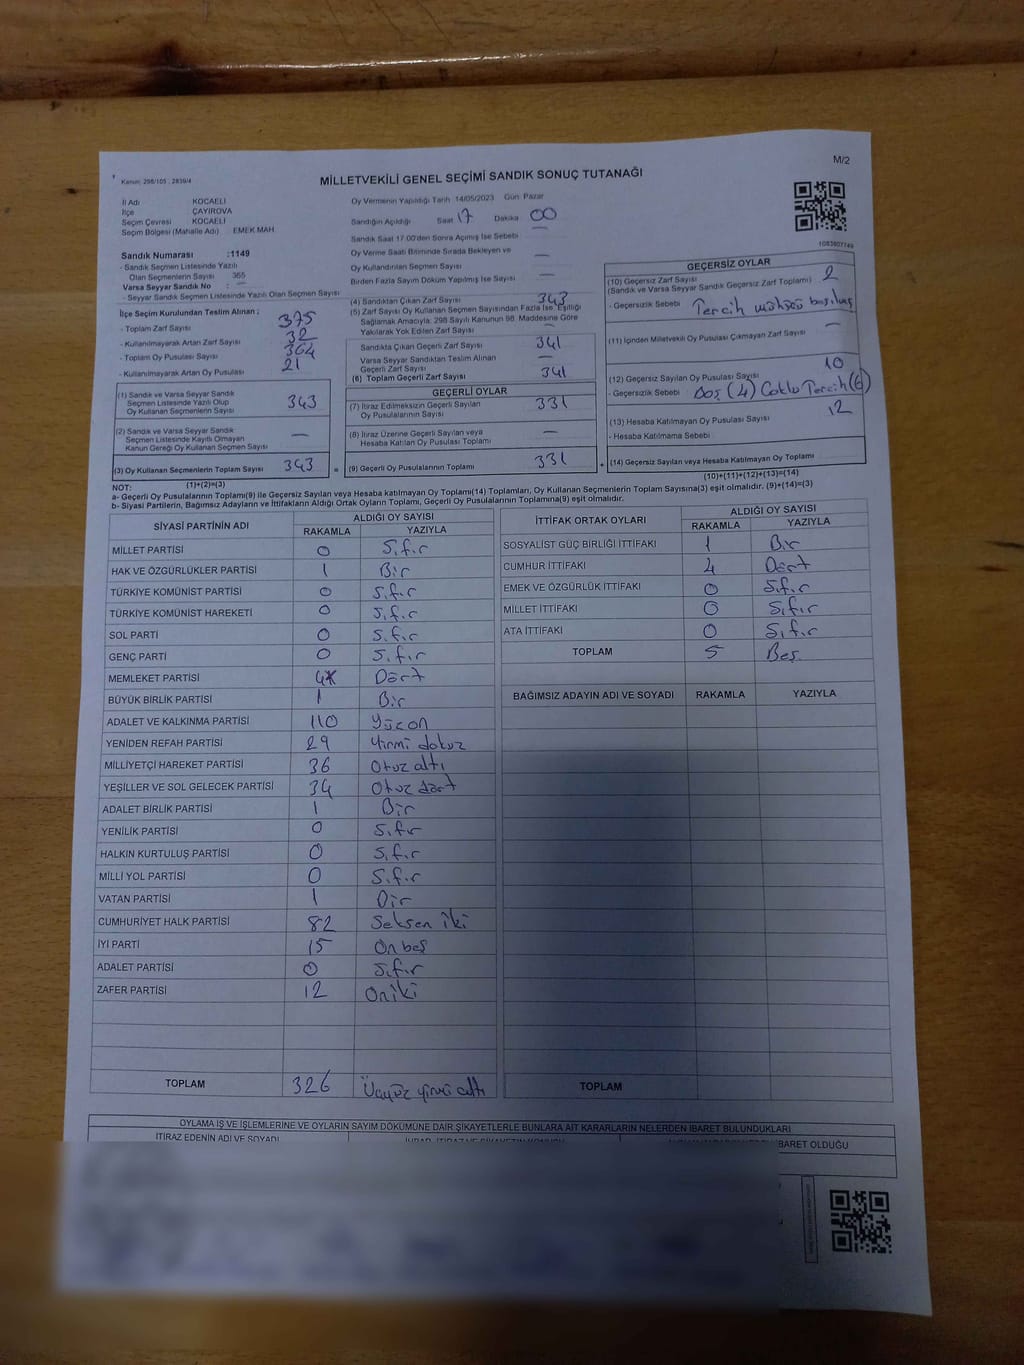 M/2
Kanun: 298/105 , 2839/4
MİLLETVEKİLİ GENEL SEÇİMİ SANDIK SONUÇ TUTANAĞI
İl Adı KOCAELİ
İlçe ÇAYIROVA
Seçim Çevresi KOCAELİ
Seçim Bölgesi (Mahalle Adı) EMEK MAH.
Sandık Numarası :1149
- Sandık Seçmen Listesinde Yazılı
Olan Seçmenlerin Sayısı 365
Varsa Seyyar Sandık No : —
- Seyyar Sandık Seçmen Listesinde Yazılı Olan Seçmen Sayısı
İlçe Seçim Kurulundan Teslim Alınan ;
- Toplam Zarf Sayısı 375
- Kullanılmayarak Artan Zarf Sayısı 32
- Toplam Oy Pusulası Sayısı 364
- Kullanılmayarak Artan Oy Pusulası 21
(1) Sandık ve Varsa Seyyar Sandık
Seçmen Listesinde Yazılı Olup
Oy Kullanan Seçmenlerin Sayısı 343
(2) Sandık ve Varsa Seyyar Sandık
Seçmen Listesinde Kayıtlı Olmayan
Kanun Gereği Oy Kullanan Seçmen Sayısı —
(3) Oy Kullanan Seçmenlerin Toplam Sayısı 343 =
Oy Vermenin Yapıldığı Tarih 14/05/2023 Gün Pazar
Sandığın Açıldığı Saat 17 Dakika 00
Sandık Saat 17.00'den Sonra Açılmış İse Sebebi —
Oy Verme Saati Bitiminde Sırada Bekleyen ve
Oy Kullandırılan Seçmen Sayısı —
Birden Fazla Sayım Döküm Yapılmış İse Sayısı —
(4) Sandıktan Çıkan Zarf Sayısı 343
(5) Zarf Sayısı Oy Kullanan Seçmen Sayısından Fazla İse, Eşitliği
Sağlamak Amacıyla, 298 Sayılı Kanunun 98. Maddesine Göre
Yakılarak Yok Edilen Zarf Sayısı —
Sandıkta Çıkan Geçerli Zarf Sayısı 341
Varsa Seyyar Sandıktan Teslim Alınan
Geçerli Zarf Sayısı —
(6) Toplam Geçerli Zarf Sayısı 341
GEÇERLİ OYLAR
(7) İtiraz Edilmeksizin Geçerli Sayılan
Oy Pusulalarının Sayısı 331
(8) İtiraz Üzerine Geçerli Sayılan veya
Hesaba Katılan Oy Pusulası Toplamı —
(9) Geçerli Oy Pusulalarının Toplamı 331 +
1083907149
GEÇERSİZ OYLAR
(10) Geçersiz Zarf Sayısı 2
(Sandık ve Varsa Seyyar Sandık Geçersiz Zarf Toplamı)
- Geçersizlik Sebebi Tercih mühürü basılmış
(11) İçinden Milletvekili Oy Pusulası Çıkmayan Zarf Sayısı —
(12) Geçersiz Sayılan Oy Pusulası Sayısı 10
- Geçersizlik Sebebi Boş (4) Çoklu Tercih (6)
(13) Hesaba Katılmayan Oy Pusulası Sayısı 12
- Hesaba Katılmama Sebebi
(14) Geçersiz Sayılan veya Hesaba Katılmayan Oy Toplamı
(1)+(2)=(3)
(10)+(11)+(12)+(13)=(14)
NOT:
a- Geçerli Oy Pusulalarının Toplamı(9) ile Geçersiz Sayılan veya Hesaba katılmayan Oy Toplamı(14) Toplamları, Oy Kullanan Seçmenlerin Toplam Sayısına(3) eşit olmalıdır. (9)+(14)=(3)
b- Siyasi Partilerin, Bağımsız Adayların ve İttifakların Aldığı Ortak Oyların Toplamı, Geçerli Oy Pusulalarının Toplamına(9) eşit olmalıdır.
SİYASİ PARTİNİN ADI ALDIĞI OY SAYISI
RAKAMLA YAZIYLA
MİLLET PARTİSİ 0 Sıfır
HAK VE ÖZGÜRLÜKLER PARTİSİ 1 Bir
TÜRKİYE KOMÜNİST PARTİSİ 0 Sıfır
TÜRKİYE KOMÜNİST HAREKETİ 0 Sıfır
SOL PARTİ 0 Sıfır
GENÇ PARTİ 0 Sıfır
MEMLEKET PARTİSİ 4 Dört
BÜYÜK BİRLİK PARTİSİ 1 Bir
ADALET VE KALKINMA PARTİSİ 110 Yüzon
YENİDEN REFAH PARTİSİ 29 Yirmi dokuz
MİLLİYETÇİ HAREKET PARTİSİ 36 Otuz altı
YEŞİLLER VE SOL GELECEK PARTİSİ 34 Otuz dört
ADALET BİRLİK PARTİSİ 1 Bir
YENİLİK PARTİSİ 0 Sıfır
HALKIN KURTULUŞ PARTİSİ 0 Sıfır
MİLLİ YOL PARTİSİ 0 Sıfır
VATAN PARTİSİ 1 Bir
CUMHURİYET HALK PARTİSİ 82 Seksen iki
İYİ PARTİ 15 Onbeş
ADALET PARTİSİ 0 Sıfır
ZAFER PARTİSİ 12 Oniki
TOPLAM 326 Üçyüz yirmi altı
İTTİFAK ORTAK OYLARI ALDIĞI OY SAYISI
RAKAMLA YAZIYLA
SOSYALİST GÜÇ BİRLİĞİ İTTİFAKI 1 Bir
CUMHUR İTTİFAKI 4 Dört
EMEK VE ÖZGÜRLÜK İTTİFAKI 0 Sıfır
MİLLET İTTİFAKI 0 Sıfır
ATA İTTİFAKI 0 Sıfır
TOPLAM 5 Beş
BAĞIMSIZ ADAYIN ADI VE SOYADI RAKAMLA YAZIYLA
TOPLAM
OYLAMA İŞ VE İŞLEMLERİNE VE OYLARIN SAYIM DÖKÜMÜNE DAİR ŞİKAYETLERLE BUNLARA AİT KARARLARIN NELERDEN İBARET BULUNDUKLARI
İTİRAZ EDENİN ADI VE SOYADI
İBARET OLDUĞU